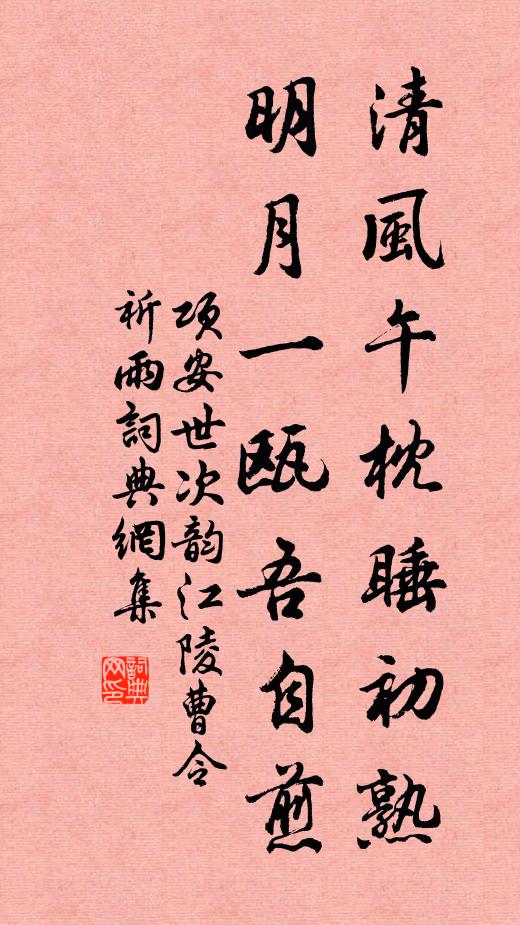 清風午枕睡初熟
明月一甌吾自煎
項安世次韵江陵曹令
祈雨詞典網集
詞典網印